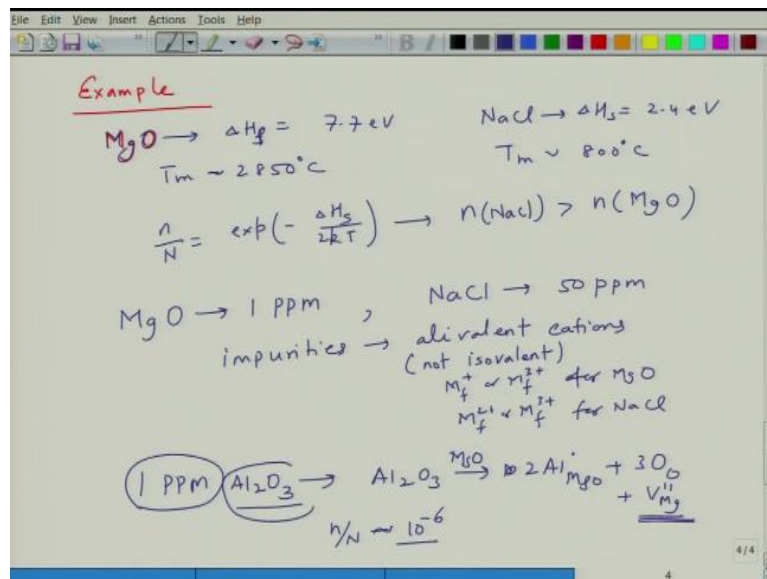 File Edit View Insert Actions Tools Help
Example
MgO → ΔHf = 7.7 eV NaCl → ΔHs = 2.4 eV
Tm ~ 2850°C Tm ~ 800°C
n/N = exp(- ΔHs/2kT) → n(NaCl) > n(MgO)
MgO → 1 ppm , NaCl → 50 ppm
impurities → alivalent cations
(not isovalent)
Mf+ or Mf3+ for MgO
Mf2+ or Mf3+ for NaCl
1 PPM Al2O3 → Al2O3 MgO→ 2Al•MgO + 3OO
+ V''Mg
n/N ~ 10^-6
4/4
4